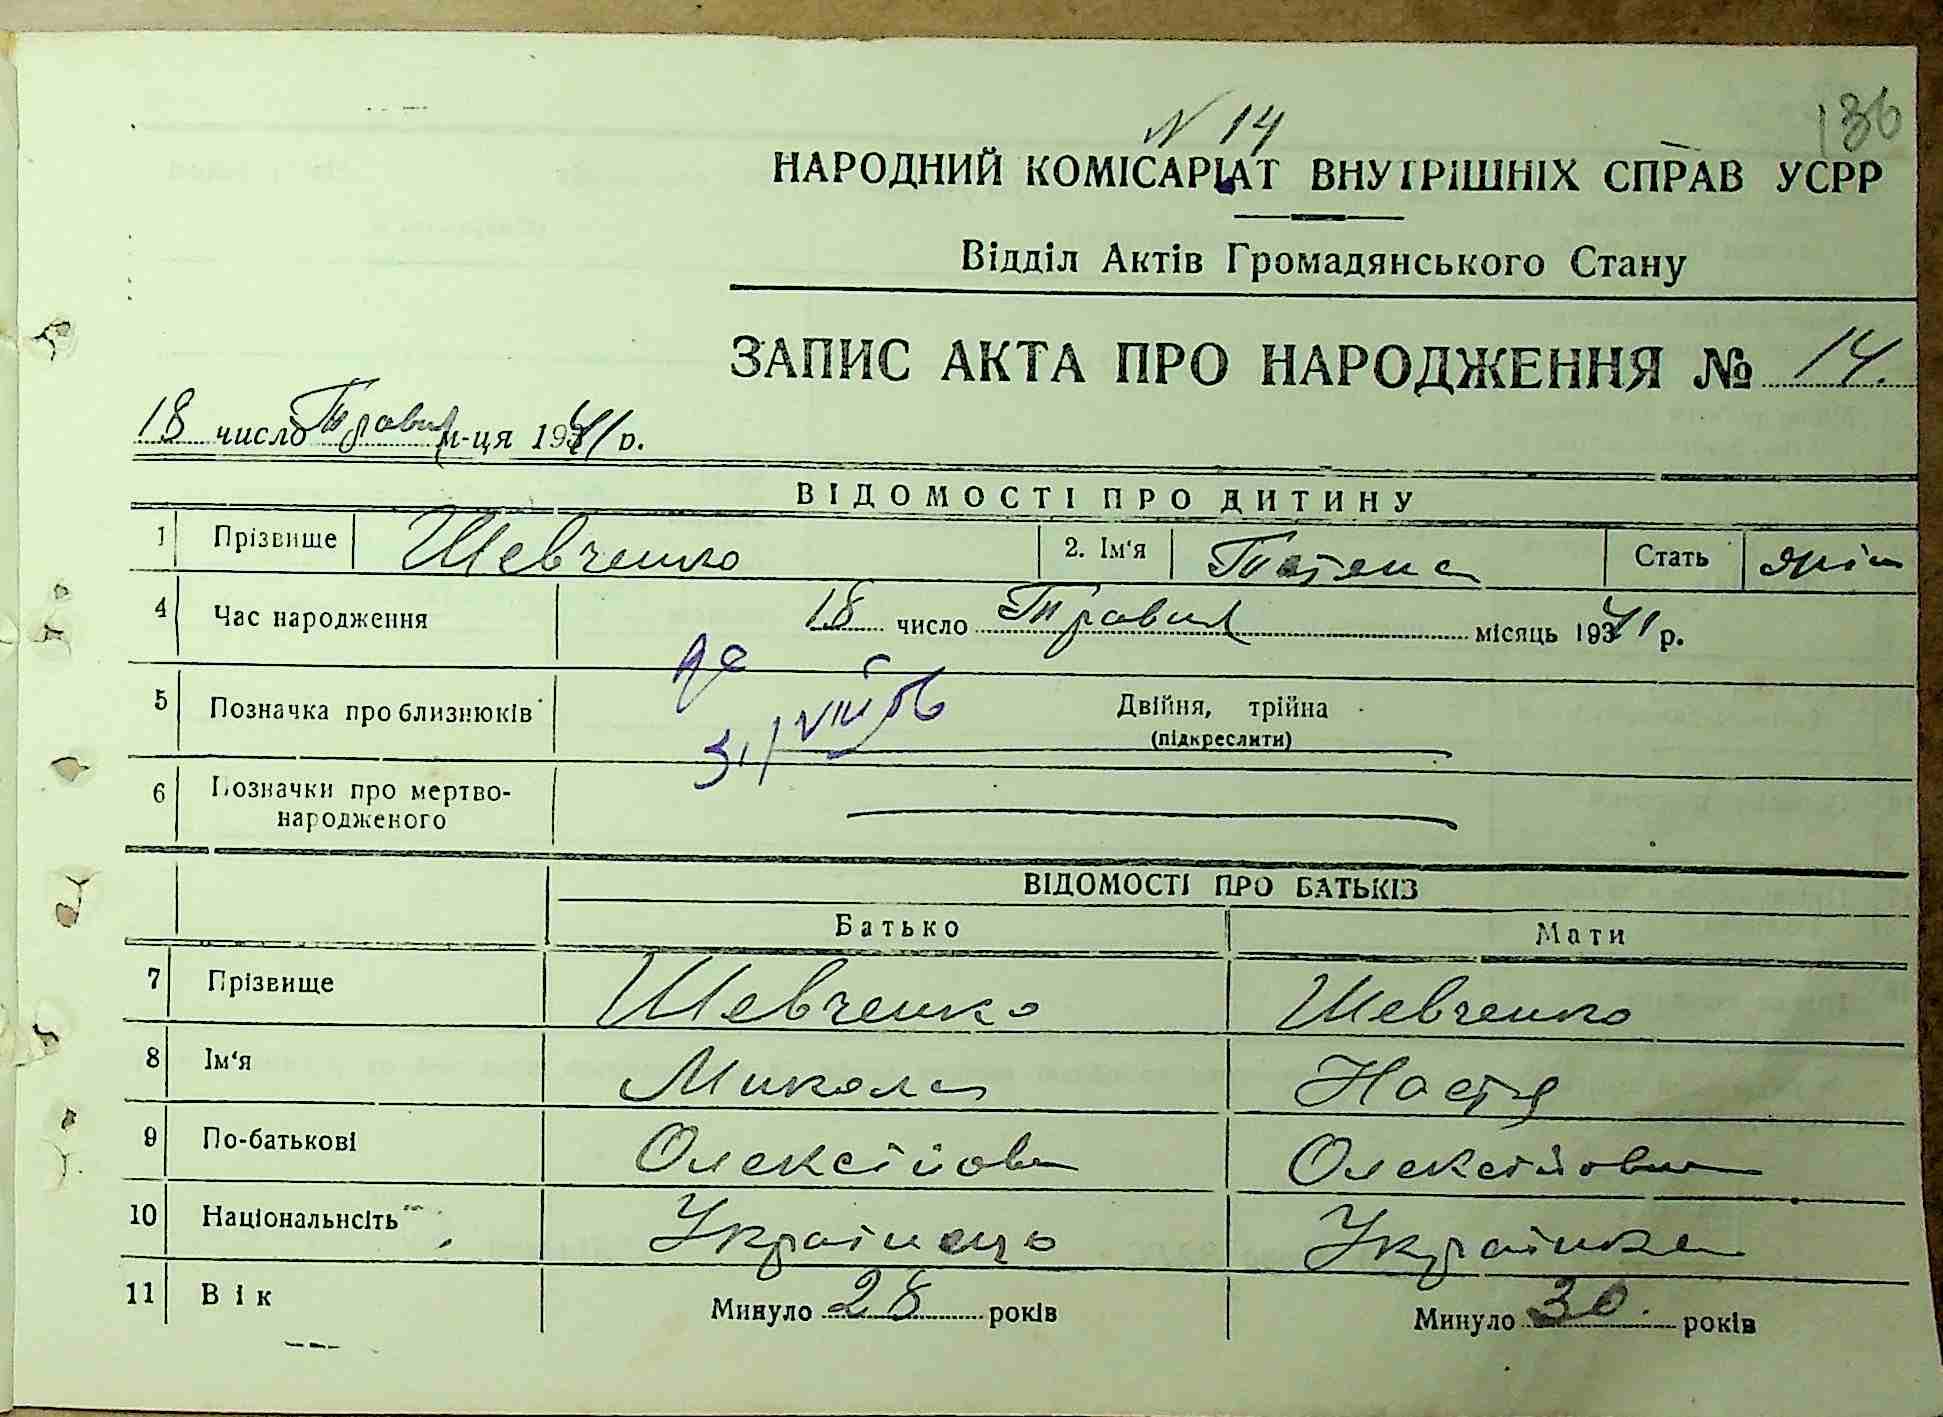 136
N 14
НАРОДНИЙ КОМІСАРІАТ ВНУТРІШНІХ СПРАВ УСРР
Відділ Актів Громадянського Стану
ЗАПИС АКТА ПРО НАРОДЖЕННЯ № 14.
18 число Травня м-ця 1941 р.
ВІДОМОСТІ ПРО ДИТИНУ
1 Прізвище Шевченко 2. Ім'я Татяна Стать
4 Час народження 18 число Травня місяць 1941 р.
5 Позначка про близнюків Двійня, трійна
(підкреслити)
31/VIII 56
6 Позначки про мертво-
народженого
ВІДОМОСТІ ПРО БАТЬКІВ
Батько Мати
7 Прізвище Шевченко Шевченко
8 Ім'я Микола Настя
9 По-батькові Олексійов Олексійовна
10 Національнсіть Українець Українка
11 Вік Минуло 28 років Минуло 30 років